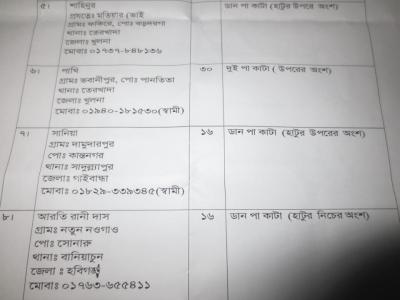 ৫। শাহিনুর ডান পা কাটা (হাটুর উপরে অংশ)
প্রযত্নেঃ মতিয়ার (ভাই)
গ্রামঃ ফকিরে, পোঃ
থানাঃ তেরখাদা
জেলাঃ খুলনা
মোবাঃ ০১৭৩৭-৮৪৮১৩৬
৬। পাখি ৩০ দুই পা কাটা ( উপরের অংশ)
গ্রামঃ ভবানীপুর, পোঃ পানতিতা
থানাঃ তেরখাদা
জেলাঃ খুলনা
মোবাঃ ০১৯৪০-১৮১৫৩০(স্বামী)
৭। সানিয়া ১৬ ডান পা কাটা (হাটুর উপরের অংশ)
গ্রামঃ দামুদারপুর
পোঃ কান্তনগর
থানাঃ সাদুল্ল্যাপুর
জেলাঃ গাইবান্ধা
মোবাঃ ০১৮২৯-৩৩৯৩৪৫(স্বামী)
৮। আরতি রানী দাস ১৬ ডান পা কাটা (হাটুর নিচের অংশ)
গ্রামঃ নতুন নওগাও
পোঃ সোনারু
থানাঃ বানিয়াচুন
জেলা ঃ হবিগঞ্জ
মোবাঃ ০১৭৬৩-৬৫৫৪১১